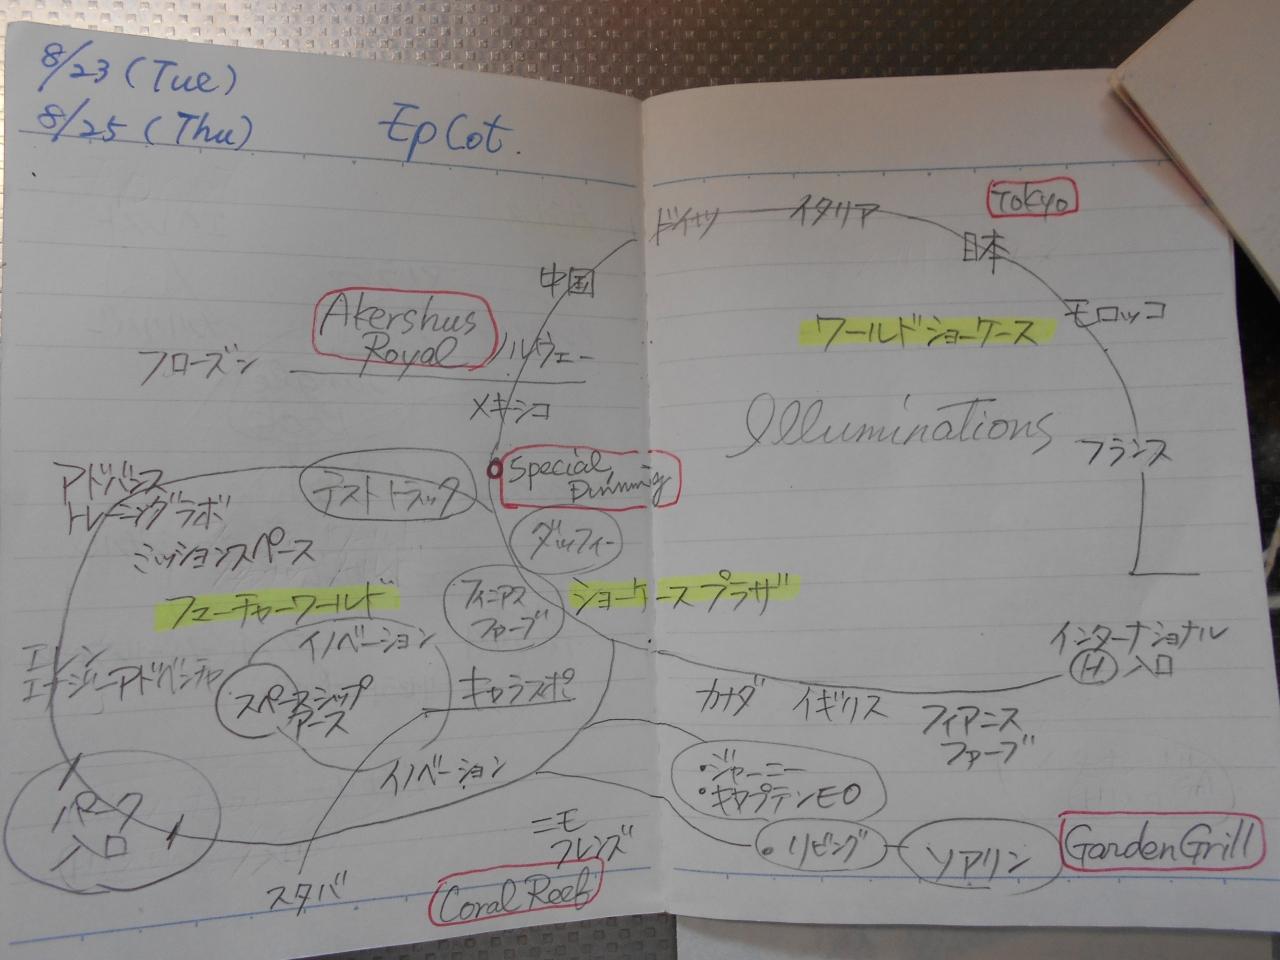 8/23 (Tue)
8/25 (Thu)
EpCot.
ドイツ
イタリア
Tokyo
日本
中国
モロッコ
ワールドショーケース
Akershus
Royal
ノルウェー
フローズン
メキシコ
Illuminations
フランス
Special
Dinning
テストトラック
アドバンス
トレーニングラボ
ミッションスペース
ダッフィー
フューチャーワールド
フィニアス
ファーブ
ショーケースプラザ
イノベーション
エレン
エナジーアドベンチャ
スペースシップ
アース
キャラスポ
インターナショナル
H 入口
カナダ
イギリス
フィアニス
ファーブ
イノベーション
・ジャーニー
・キャプテンEO
パーク
入口
ニモ
フレンズ
・リビング
ソアリン
Garden Grill
スタバ
Coral Reef